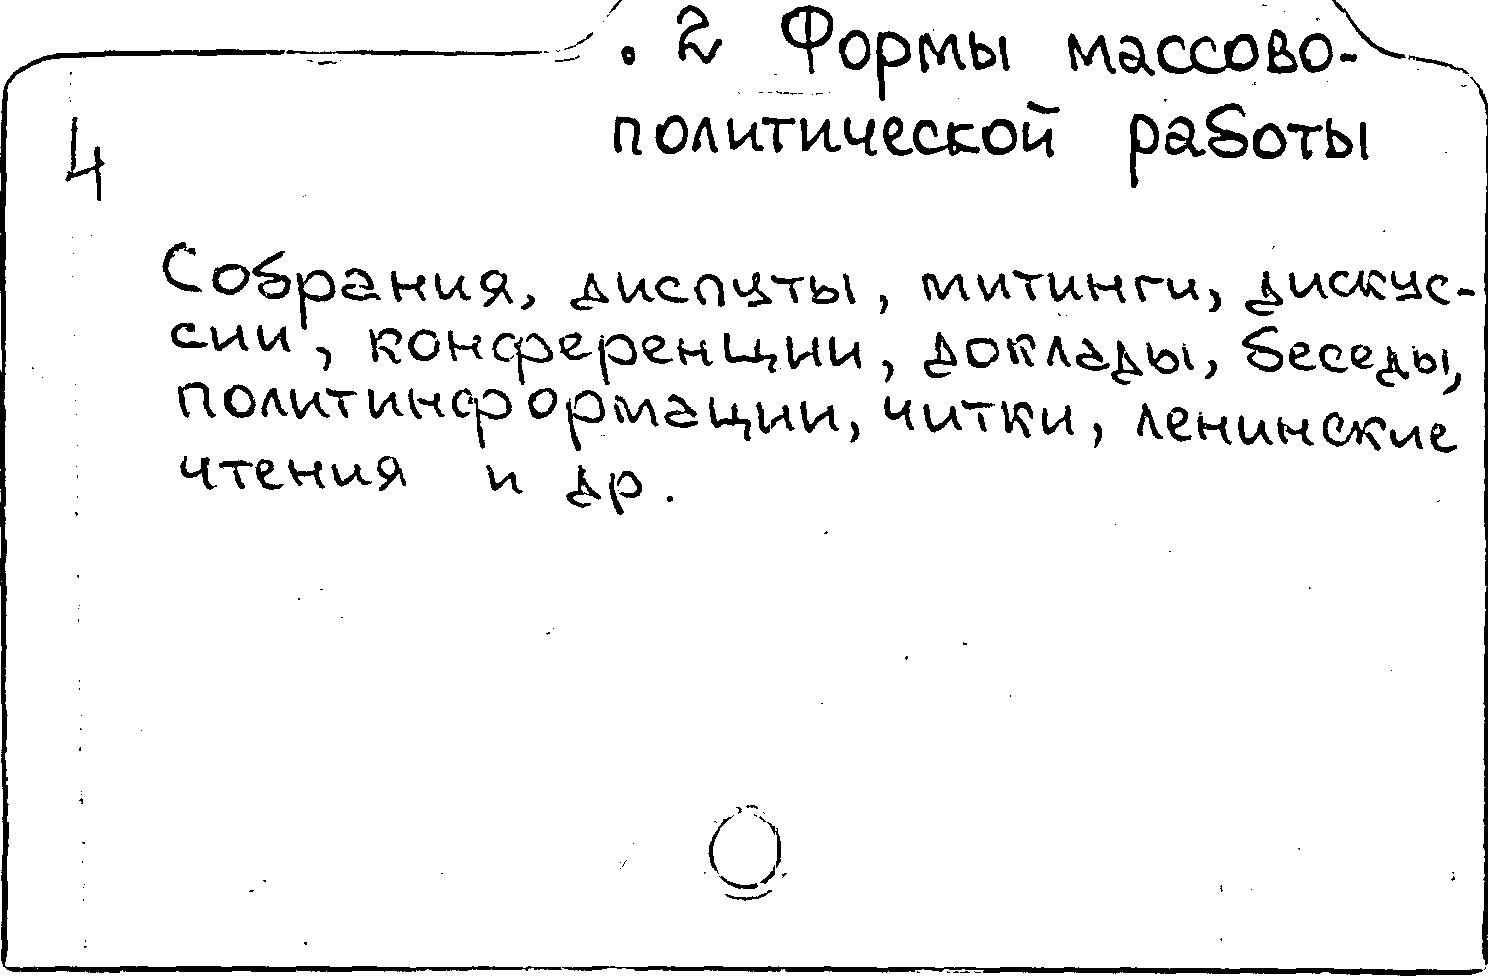 . 2 Формы массово-
политической работы
4
Собрания, диспуты, митинги, дискус-
сии, конференции, доклады, беседы,
политинформации, читки, ленинские
чтения и др.